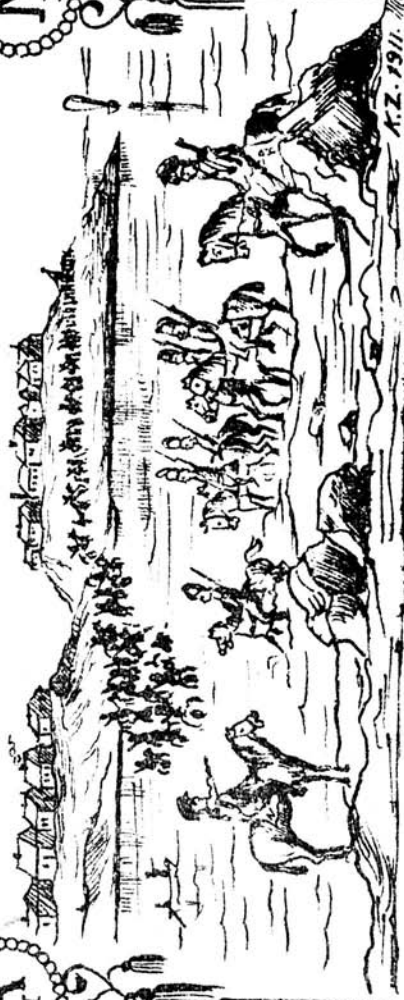 K.Z. 1911.